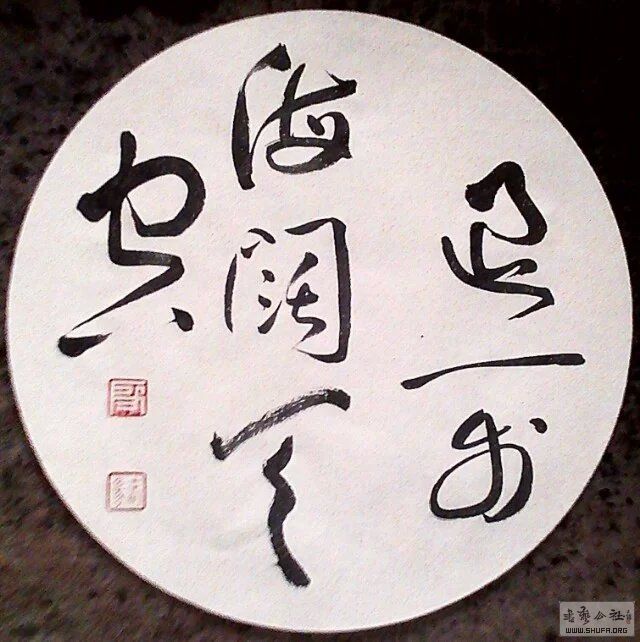 退一步
海阔天
空
書藝公社
WWW.SHUFA.ORG